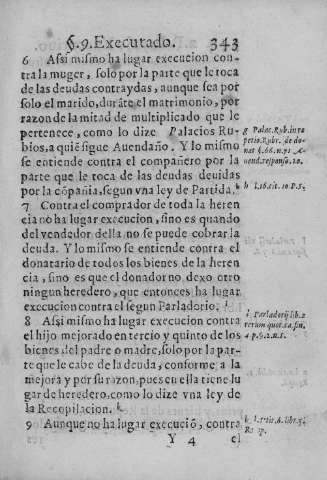 §.9.Executado. 343
6 Assi mismo ha lugar execucion con-
tra la muger, solo por la parte que le toca
de las deudas contraydas, aunque sea por
solo el marido, durāte el matrimonio, por
razon de la mitad de multiplicado que le
pertenece, como lo dize g Palacios Ru-
bios, a quiē sigue Auendaño. Y lo mismo
se entiende contra el compañero por la
parte que le toca de las deudas deuidas
por la cōpañia, segun vna ley de Partida. h
7 Contra el comprador de toda la heren
cia no ha lugar execucion, sino es quando
del vendedor della no se puede cobrar la
deuda. Y lo mismo se entiende contra el
donatario de todos los bienes de la heren
cia, sino es que el donador no dexo otro
ningun heredero, que entonces ha lugar
execucion contra el segun Parladorio. i
8 Assi mismo ha lugar execucion contra
el hijo mejorado en tercio y quinto de los
bienes del padre o madre, solo por la par-
te que le cabe de la deuda, conforme a la
mejora y por su razon, pues en ella tiene lu
gar de heredero, como lo dize vna ley de
la Recopilacion. k
9 Aunque no ha lugar execuciō, contra
Y 4 el
g Palac. Rub. in re
petio. Rubr. de do-
nat §.66. n.21 A
uend. responso. 20.
h l.16. tit. 10 P.5.
i Parladorij lib. 2
rerum quot. ca. fin.
4 p. §.2. n.5.
k l.5 tit. 6. libr. 5.
Re cp.